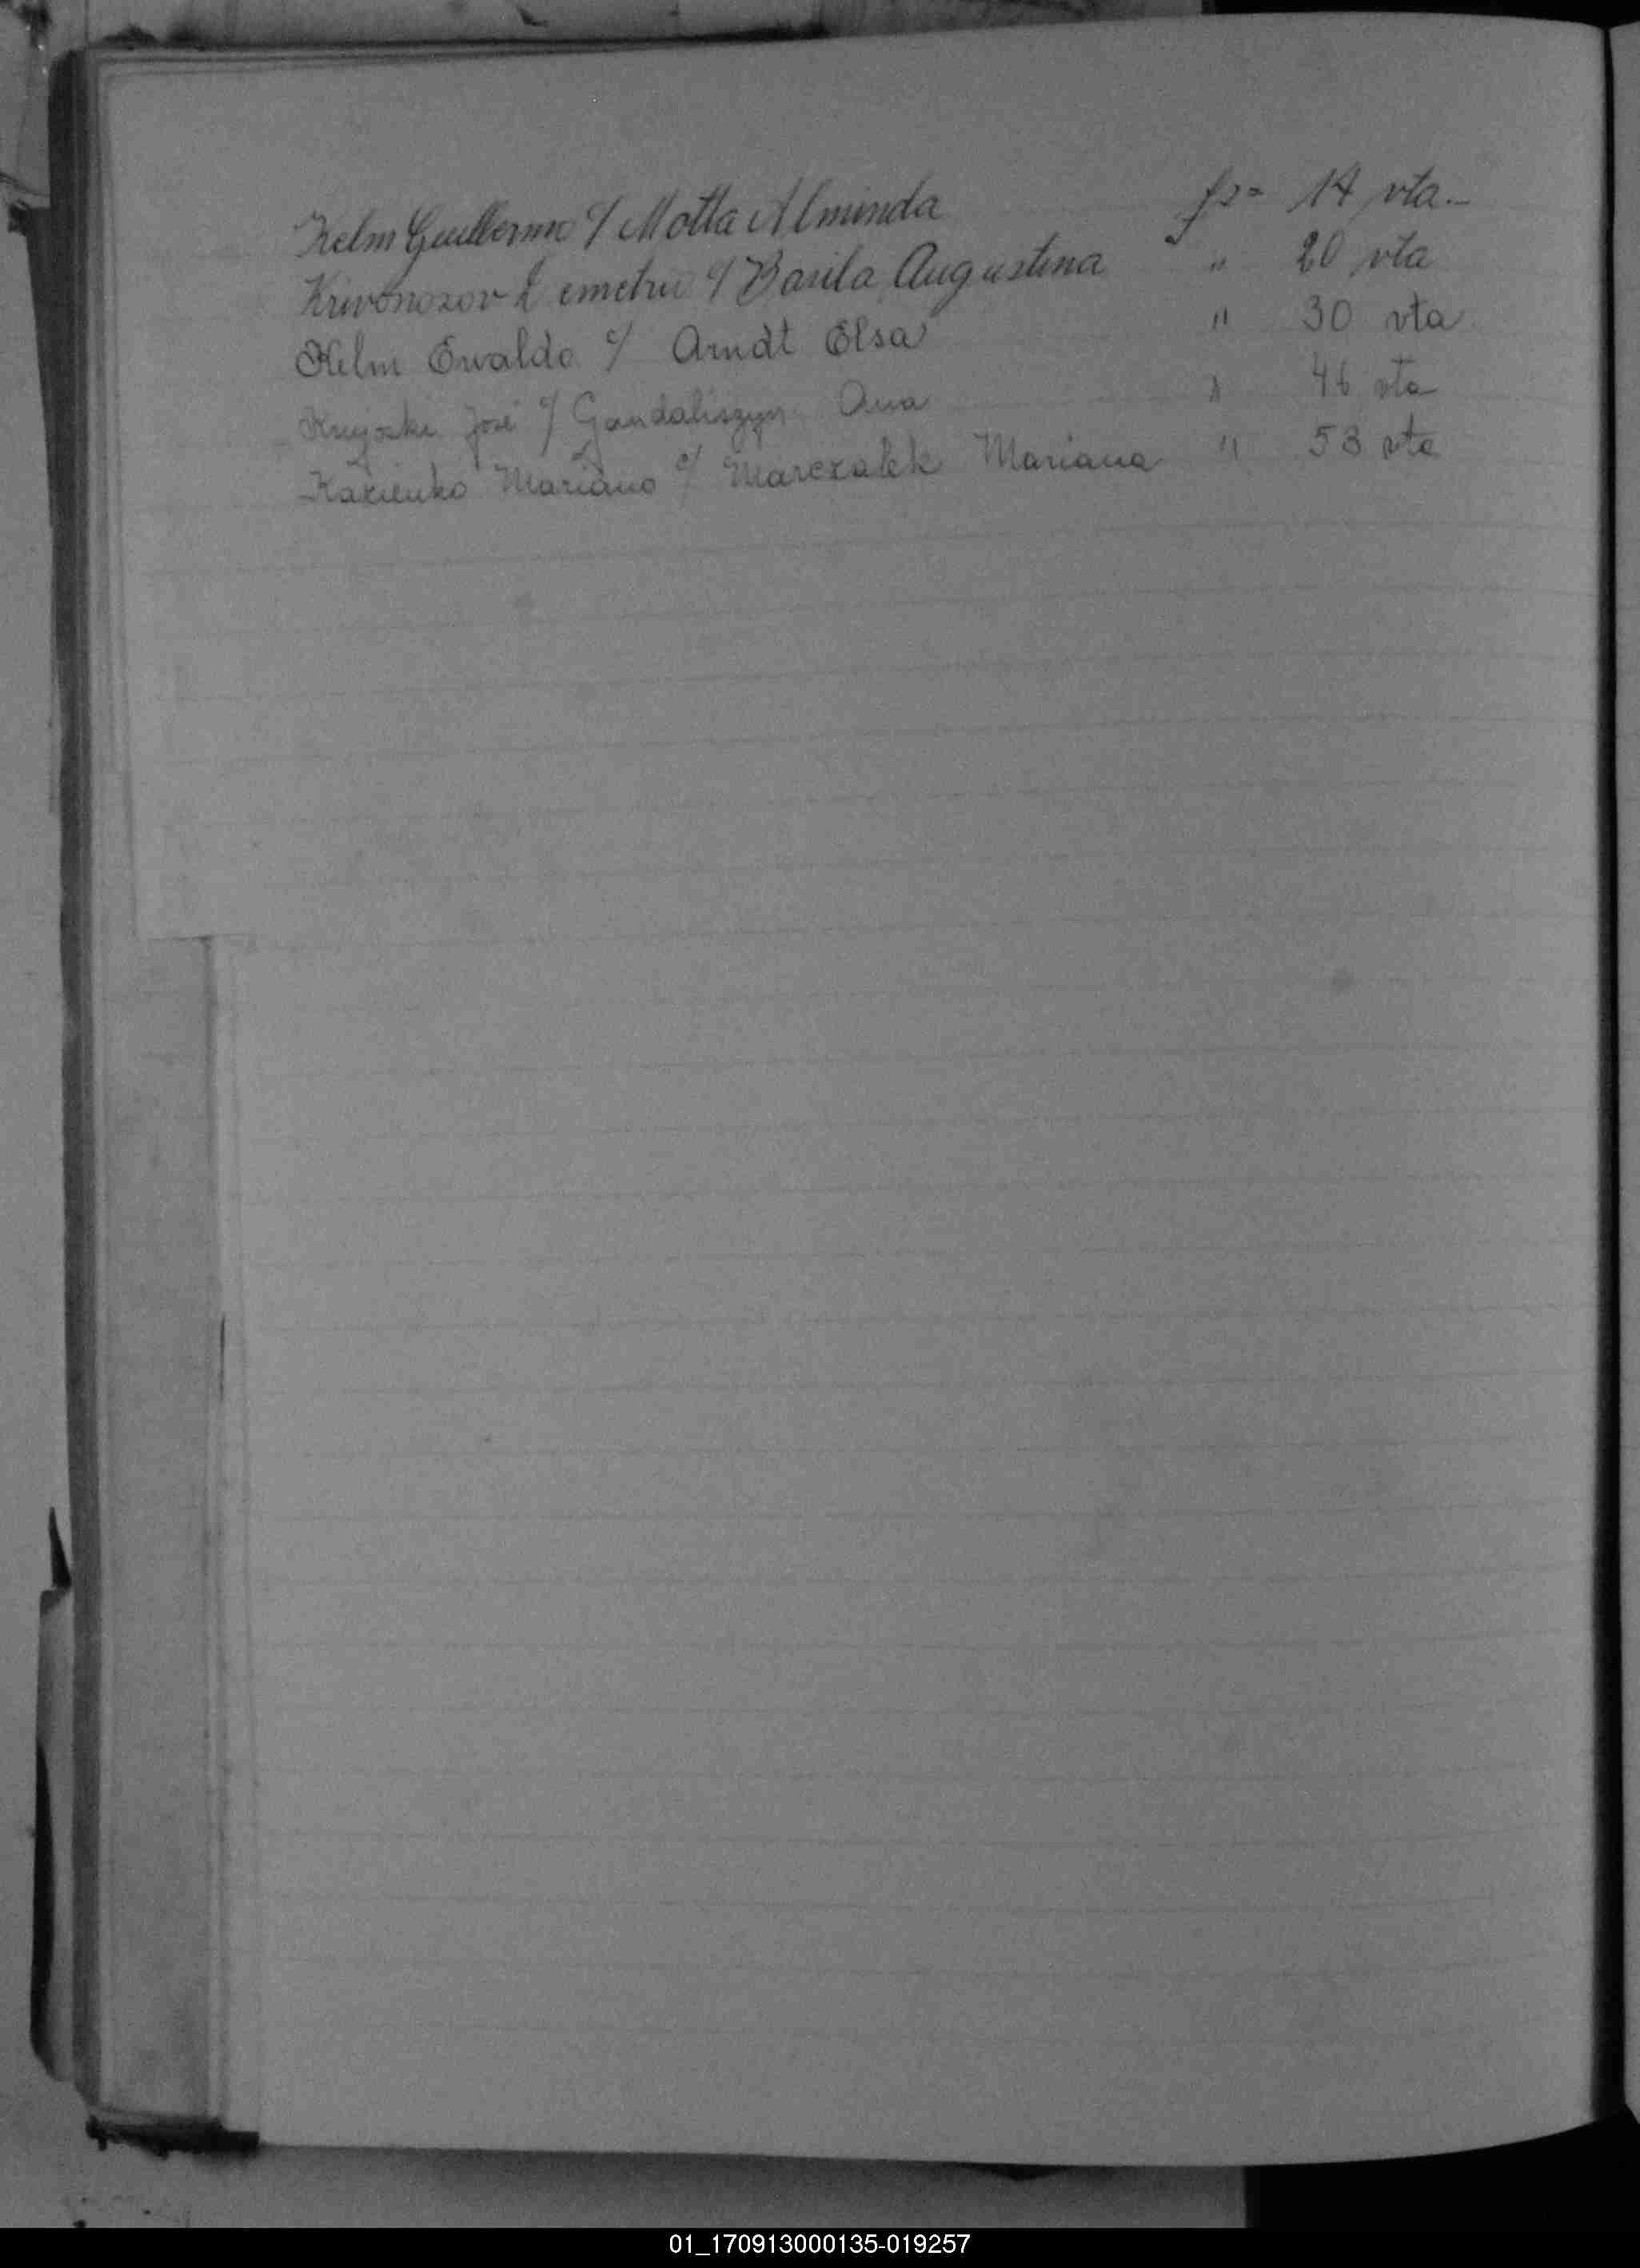 Kelm Guillermo c/ Motta Alminda fs= 14 vta.-
Krivonozov Demetrio c/ Basila Augustina " 20 vta
Kelm Ewaldo c/ Arndt Elsa " 30 vta
José c/ Gandaliszyn Ana " 46 vta
Kazienko Mariano c/ Marczalek Mariana " 53 vta
01_170913000135-019257